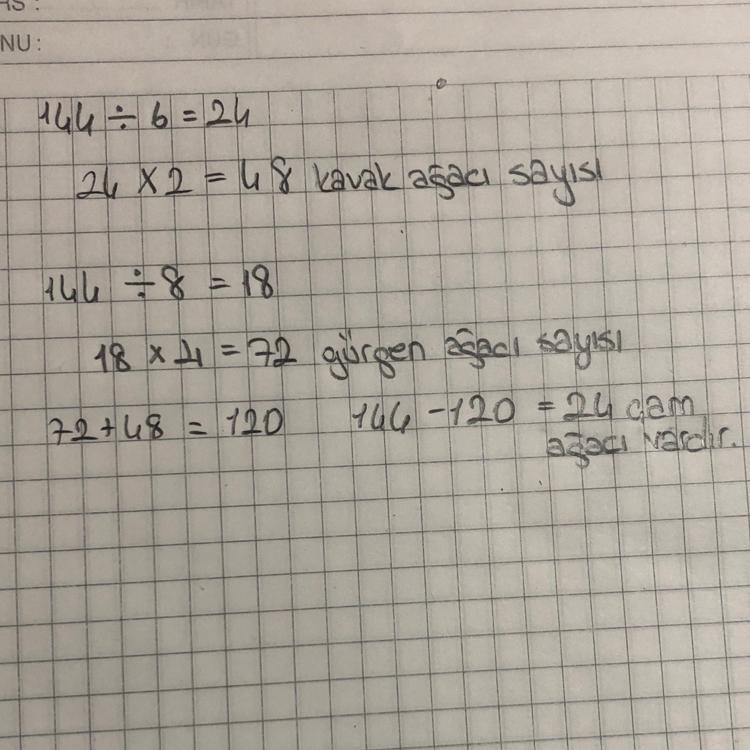 NU:
144 ÷ 6 = 24
24 x 2 = 48 kavak ağacı sayısı
144 ÷ 8 = 18
18 x 4 = 72 gürgen ağacı sayısı
72 + 48 = 120 144 - 120 = 24 çam
ağacı vardır.